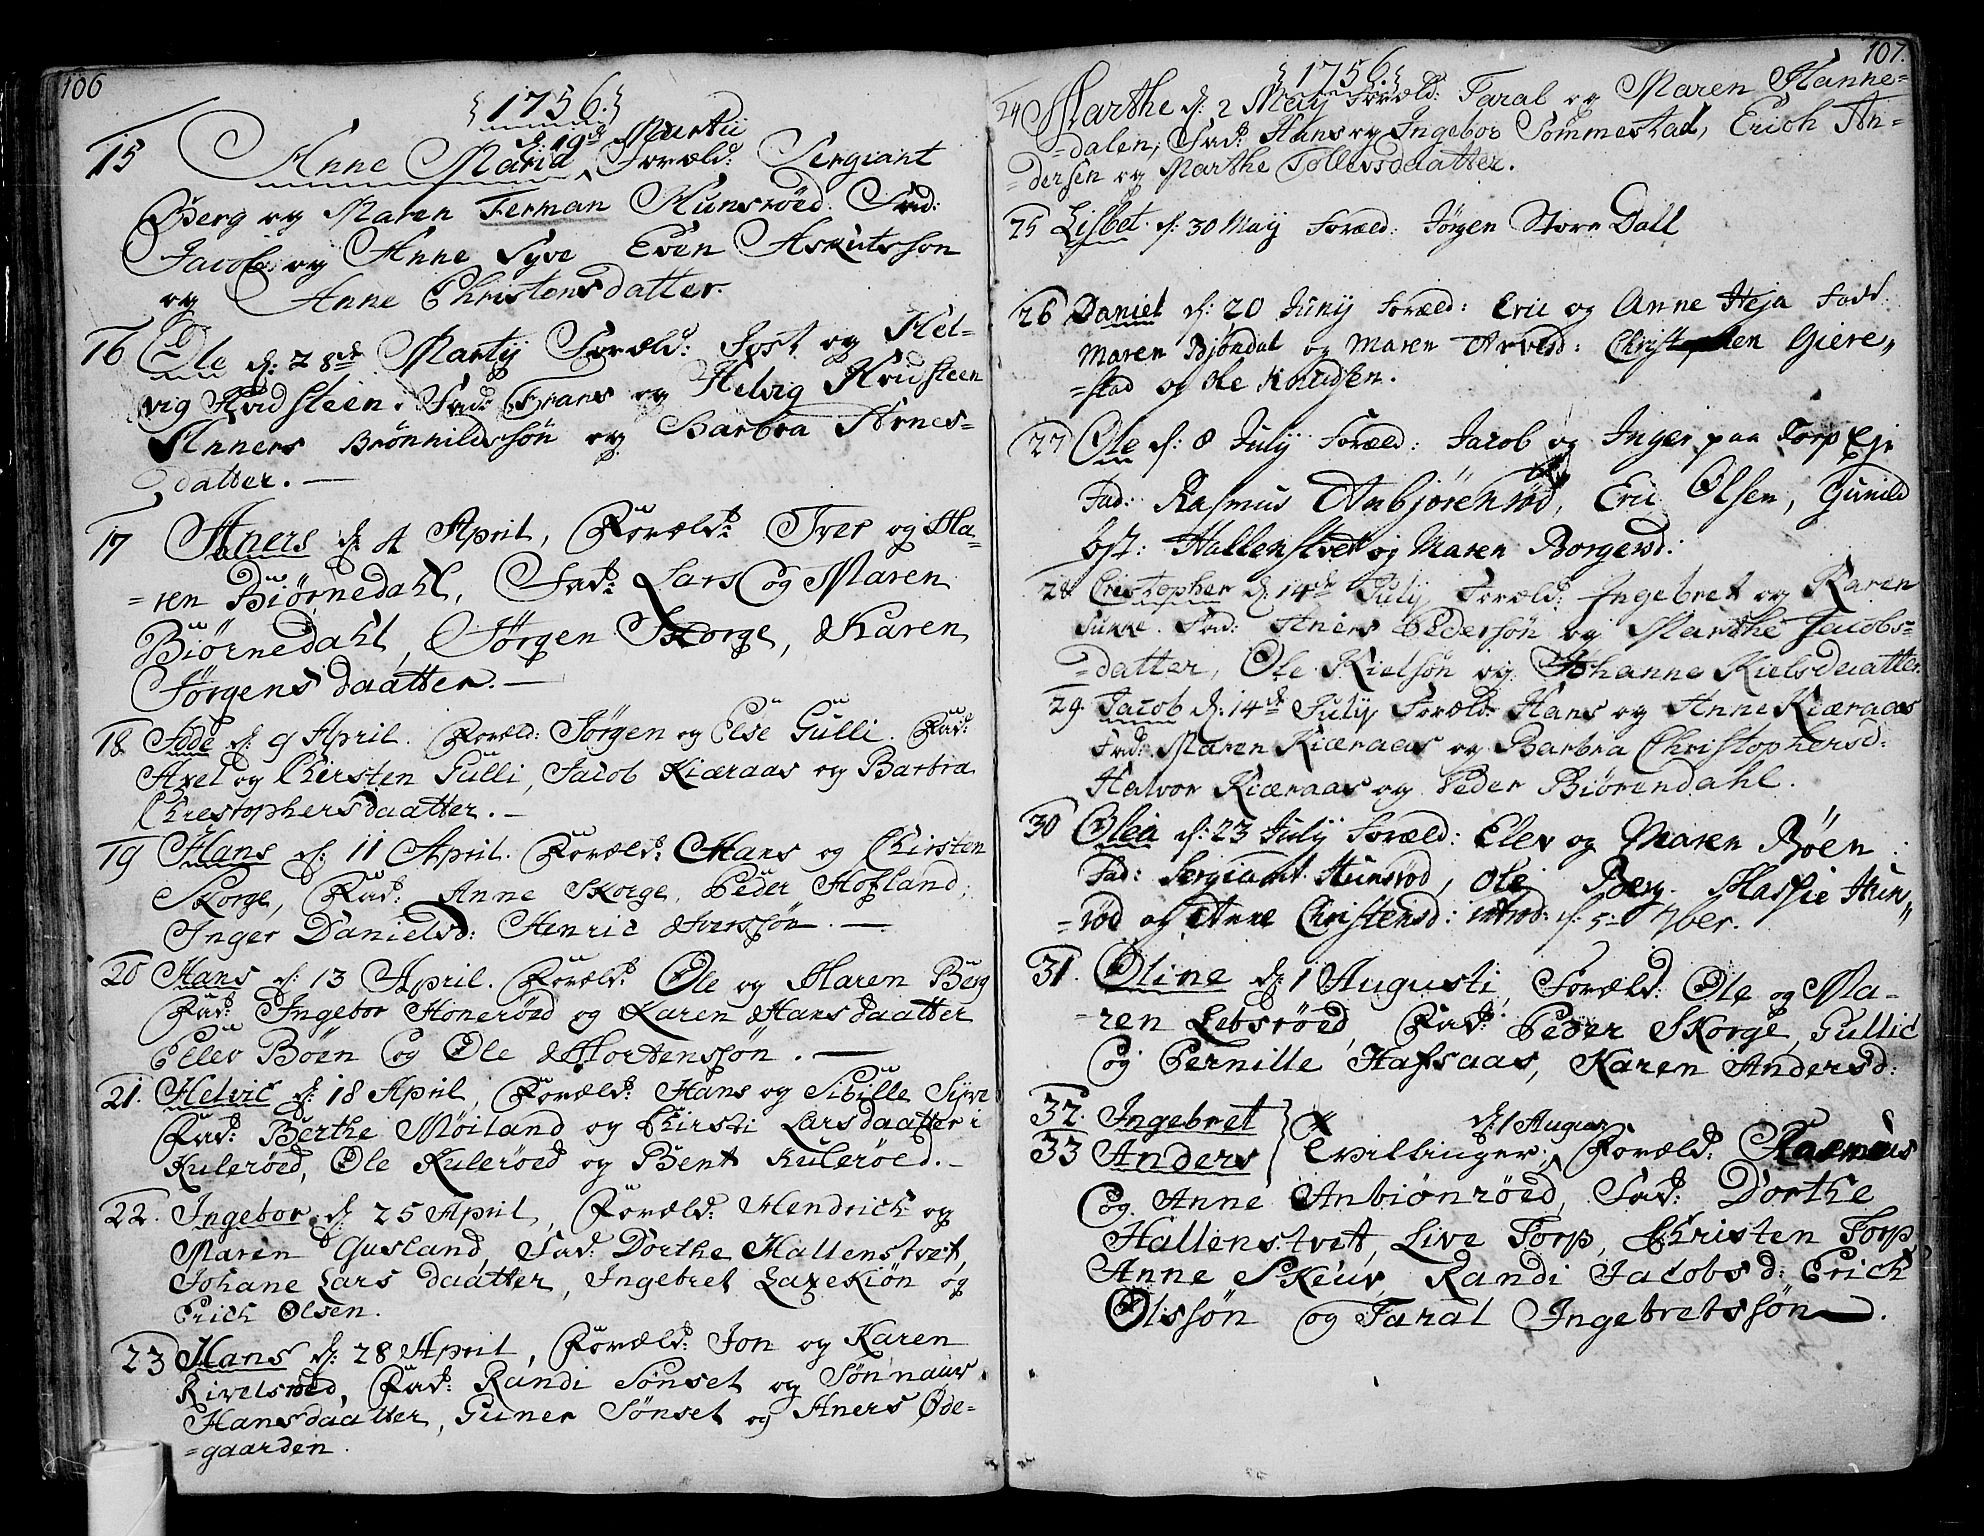 106
{1756.}
d: 19de Martii
15 Anne Maria, Foræld: Sergiant
Berg og Maren Ferman Hunsröed. Fad:
Jacob og Anne Syve Even Askutsson
og Anne Christensdatter.
16 Ole d: 28de Martij Foræld: Jost og Hel-
vig Kvidsteen. Fad: Frans og Helvig Kvidsteen
Anners Brönnildssön og Barbra Arnes-
datter. —
17 Aners d: 4 April, Foræld: Iver og Ma-
=ren Biörnedahl, Fad: Lars og Maren
Biörnedahl, Jörgen Skorge, Karen
Jörgensdaatter. —
18 Jode d: 9 April. Foræld: Jörgen og Else Gulli. Fad:
Axel og Chirsten Gulli, Jacob Kiæraas og Barbra
Chrestophersdaatter. —
19 Hans d: 11 April. Foræld: Hans og Chirsten
Skorge, Fad: Anne Skorge, Peder Hofland,
Inger Danielsd: Henric Iverssön. —
20 Hans d: 13 April. Foræld: Ole og Maren Berg
Fad: Ingebor Honeröed og Karen Hansdaatter
Ellev Böen og Ole Mortenssön. —
21. Helvic d: 18 April, Foræld: Hans og Sibille Syve
Fad: Berthe Möiland og Chirsti Larsdaatter i
Kuleröed, Ole Kuleröed og Bent Kuleröed. —
22. Ingebor d: 25 April, Foræld: Hendrich og
Maren Gusland, Fad: Dorthe Hallenstvet,
Johane Larsdaatter, Ingebret Laxekiön og
Erich Olsen.
23 Hans d: 28 April, Foræld: Jon og Karen
Rivelsröed, Fad: Randi Sönset og Sönnauv
Hansdaatter, Guner Sönset og Aners Öde-
=gaarden.
107.
{1756.}
24 Marthe d: 2 May Foræld: Taral og Maren Hanne=
=dalen, Fad: Hans og Ingebor Sommestad, Erich An-
=dersen og Marthe Tollevsdaatter.
25 Lisbet d: 30 May Foræld: Jörgen Store Dall
26 Daniel d: 20 Junij Foræld: Eric og Anne Heja Fadd:
Maren Bjöndal og Maren Arvesd: Christophen Giere,,
=stad og Ole Knudsen.
27 Ole d: 8 July Foræld: Jacob og Inger paa Torp Eje
Fad: Rasmus Anbjörenröd, Eric Olsen, Gunild
öst: Hallenstvet og Maren Borgersd:
28 Crestopher d: 14de July Foræld: Ingebret og Karen
Fad: Aners Pedersön og Marthe Jacobs=
=datter, Ole Kielsön og Johanne Kielsdaatter.
29. Jacob d: 14de July Foræld: Hans og Anne Kiæraas
Fad: Maren Kiæraas og Barbra Christophersd:
Halvor Kiæraas og Peder Biörendahl.
30 Olea d: 23 July Foræld: Elev og Maren Böen:
Fad: Sergiant Hunsröd, Ole Berg. Massie Hun,,
=röd og Anne Christensd: introd: d: 5: 7ber.
31. Oline d: 1 Augusti, Foræld: Ole og Ma-
=ren Lebsröed, Fad: Peder Skorge, Gullic
og Pernille Hafsaas, Karen Andersd:
32. Ingebret
33 Anders } Tvillinger, d: 1 August. Foræld: Rasmus
og Anne Anbiönröed, Fad: Dorthe
Hallenstvett, Live Torp, Christen Torp,
Anne Skeuv, Randi Jacobsd: Erich
Olssön og Taral Ingebretssön.